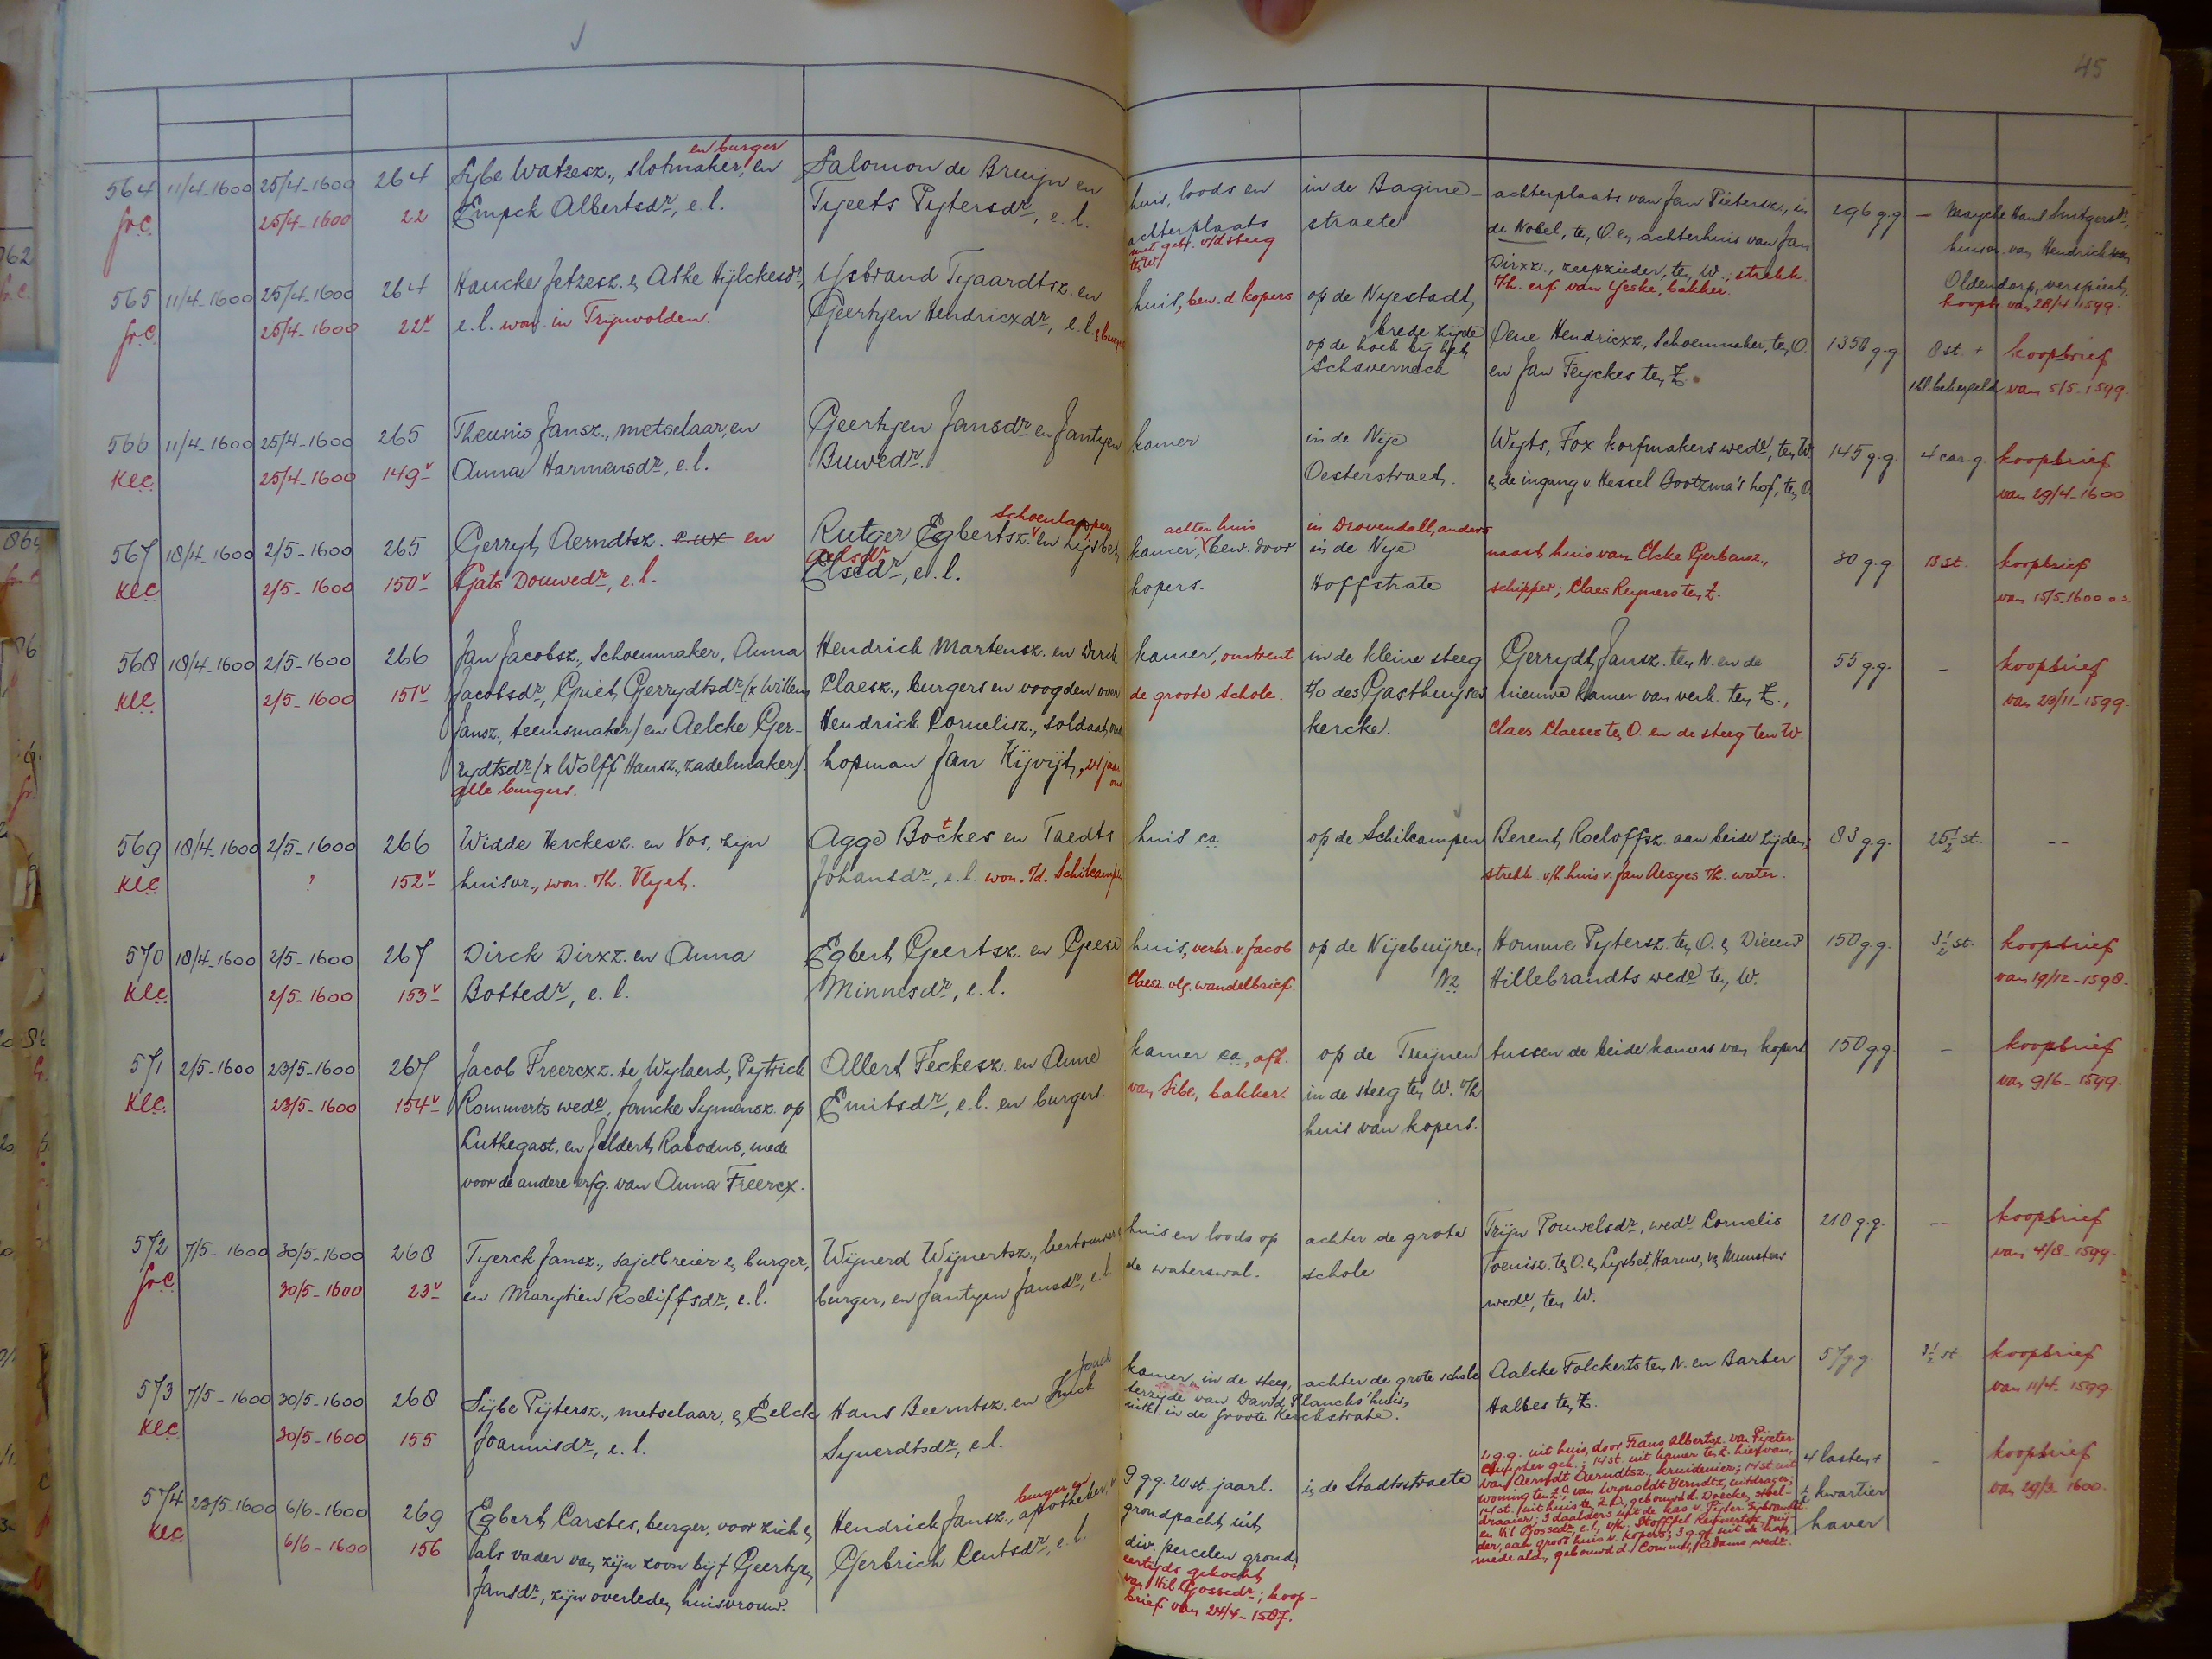 45
564 11/4-1600 25/4-1600 264 Sybe Watzesz., slotmaker, en burger en Salomon de Bruijn en huis, loods en in de Bagine- achterplaats van Jan Pietersz., in 296 g.g. — Mayche Hans
Gr.C. 25/4-1600 22 Empck Albertsdr, e.l. Tyeets Pytersdr, e.l. achterplaats straete de Nobel, ten O. en achterhuis van Jan huisvr. van Hendrick van
met geb. v/d steeg ten W. Dirxz., zeepzieder, ten W., strekk. Oldendorp, verspiert,
't h. erf van Yeske, bakker. koopbr. van 28/4-1599.
565 11/4-1600 25/4-1600 264 Haucke Jetzesz. en Athe Hylckesdr, Ysbrand Tjaardtsz. en huis, bew. d. kopers op de Nyestadt,
Gr.C. 25/4-1600 22v e.l. won. in Trijnwolden. Geertyen Hendricxdr, e.l. brede zijde Oene Hendricxz., schoenmaker, ten O. 1350 g.g. 8 st. + koopbrief
op de hoek bij het en Jan Feyckes ten Z. van 5/5-1599.
Schavernack
566 11/4-1600 25/4-1600 265 Theunis Jansz., metselaar, en Geertyen Jansdr en Jantyen kamer in de Nye Wyts, Fox korfmakers wede, ten W. 145 g.g. 4 car.g. koopbrief
Kl.C. 25/4-1600 149v Anna Harmensdr, e.l. Buwedr. Oesterstraet. en de ingang v. Hessel Bootzma's hof, ten O. van 29/4-1600.
567 18/4-1600 2/5-1600 265 Gerryt Aerndtsz. c.ux. en Rutger Egbertsz. schoenlapper, en Lijsbet kamer, achter huis bew. door in Drovendall, anders in de Nye naast huis van Elcke Gerbensz., 80 g.g. 15 st. koopbrief
Kl.C. 2/5-1600 150v Gats Douwedr, e.l. Elsedr, e.l. kopers. Hoffstrate schipper; Claes Reyners ten Z. van 15/5-1600 o.s.
568 18/4-1600 2/5-1600 266 Jan Jacobsz., schoenmaker, Anna Hendrick Martensz. en Dirck kamer, omtrent in de kleine steeg Gerrydt Jansz. ten N. en de 55 g.g. — koopbrief
Kl.C. 2/5-1600 151v Jacobsdr, Griet Gerrydtsdr (x Willem Claesz., burgers en voogden over de groote schole. t/o des Gasthuyses nieuwe kamer van verk. ten Z., van 23/11-1599.
Jansz., teemsmaker) en Aelcke Ger- Hendrick Cornelisz., soldaat, kercke. Claes Claeses ten O. en de steeg ten W.
rydtsdr (x Wolff Hansz., zadelmaker). hopman Jan Kijvijt, 24 jaar oud
alle burgers.
569 18/4-1600 2/5-1600 266 Widde Herckesz. en Vos, zijn Agge Bockes en Taedts huis ca op de Schilcampen Berent Roeloffsz. aan beide zijden, 83 g.g. 25½ st. --
Kl.C. ? 152v huisvr., won. 't h. Vlyet. Johansdr, e.l. won. o/d. Schilcampen strekk. v/h huis v. Jan Aesges 't h. water.
570 18/4-1600 2/5-1600 267 Dirck Dirxz. en Anna Egbert Geertsz. en Geese huis, verkr. v. Jacob op de Nijebuijren Homme Pytersz. ten O. en Dieuw 150 g.g. 3½ st. koopbrief
Kl.C. 2/5-1600 153v Bottedr, e.l. Minnesdr, e.l. Claesz. vlg. wandelbrief. NZ Hillebrandts wede ten W. van 19/12-1598.
571 2/5-1600 23/5-1600 267 Jacob Freercxz. te Wylaerd, Pytrick Allert Feckesz. en Anne kamer ca, afk. op de Tuijnen tussen de beide kamers van kopers 150 g.g. — koopbrief
Kl.C. 23/5-1600 154v Rommerts wede, Jancke Symensz. op Emitsdr, e.l. en burgers. van Sibe, bakker. in de steeg ten W. v/h van 9/6-1599.
Lutkegast, en Jeldert Rabodus, mede huis van kopers.
voor de andere erfg. van Anna Freercx.
572 7/5-1600 30/5-1600 268 Tyerck Jansz., sajetbreier en burger, Wijnerd Wijnertsz., leertouwer, huis en loods op achter de grote Trijn Pouwelsdr, wede Cornelis 210 g.g. -- koopbrief
Gr.C. 30/5-1600 23v en Marytien Roeliffsdr, e.l. burger, en Jantyen Jansdr, e.l. de waterswal. schole Toenisz. ten O. en Lysbet Harmen van Munsters van 4/8-1599.
wede, ten W.
573 7/5-1600 30/5-1600 268 Sijbe Pijtersz., metselaar, en Eelck Hans Beerntsz. en Jouck kamer, in de steeg, achter de grote schole Aalcke Folckerts ten N. en Barber 57 g.g. 3½ st. koopbrief
Kl.C. 30/5-1600 155 Joannisdr, e.l. Synerdtsdr, e.l. terzijde van David Planchs' huis, Halbes ten Z. van 11/4-1599.
uitk. in de Groote Kerckstrate.
574 23/5-1600 6/6-1600 269 Egbert Carstes, burger, voor zich en Hendrick Jansz., burger en apotheker, 9 g.g. 20 st. jaarl. in de Stadtsstraete 2 g.g. uit huis, door Frans Albertsz. van Pijeter 4 lasten + — koopbrief
Kl.C. 6/6-1600 156 als vader van zijn zoon bij † Geertyen Gerbrich Clentsdr, e.l. grondpacht uit 14 st. uit kamer ten Z. hiervan, ½ kwartier van 29/3-1600.
Jansdr, zijn overleden huisvrouw. div. percelen grond, van Aerndt Aerndtsz., kruidenier; 14 st. uit haver
eertijds gekocht woning ten Z.O. van Wynoldt Berndtz, uitdrager;
van Hil Gossedr; koop- 14 st. uit huis te Z.O., gebouwd d. Doecke, stoel-
brief van 24/4-1587. draaier; 3 daalders uit de kas v. Pijter Sijbrandts
en Hil Gossedr, e.l.,
der, aan groot huis v. kopers; 3 g.g. uit de kas,
mede ald., gebouwd d. Adams wedr.